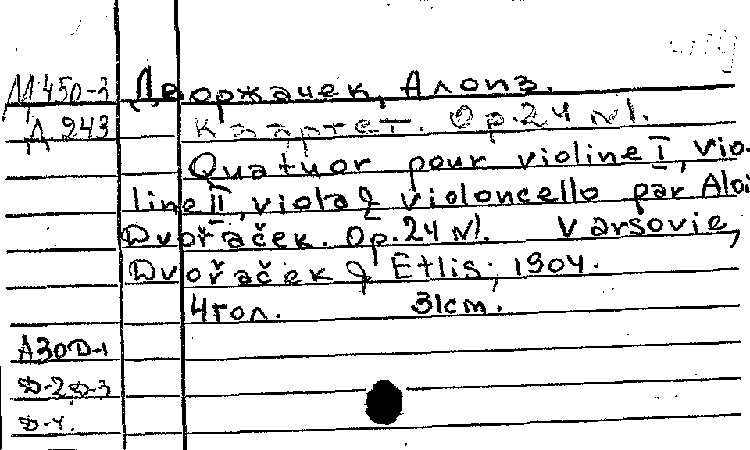 М 450-3 Дворжачек, Алоиз.
Д 243 Квартет. Op.24 №1.
Quatuor pour violine I, vio-
line II, viola & violoncello par Aloi
Dvořaček. Op.24 №1. Varsovie,
Dvořaček & Etlis, 1904.
4гол. 31cm.
А30D-1
D-2D-3
D-4.